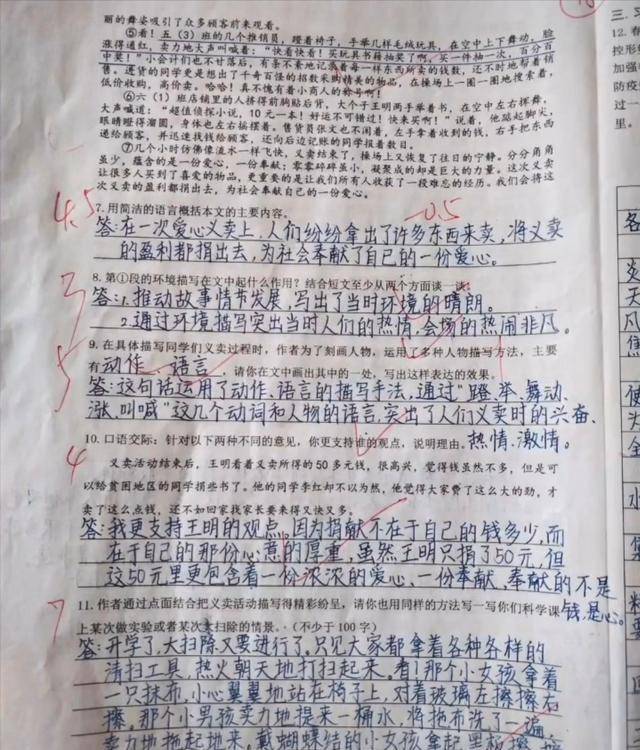 丽的舞姿吸引了众多顾客前来观看。
⑤看！五（3）班的几个推销员，蹬着椅子，手举几样毛绒玩具，在空中上下舞动，脸
涨得通红，卖力地大声叫喊着：“快看快看！买玩具书籍抽奖了啊，买一件抽一次，百分百
中奖！”小会计们也不甘落后，有条不紊地记录着每一样东西所卖的钱数，还不时地帮着销
售。进货的同学更是想出了千奇百怪的招数来购精美的物品，在操场上一圈一圈地搜索着，
低价收购，高价卖。哈哈！真不愧有着小商人的称号啊！
⑥六（1）班店铺里的人挤得前胸贴后背，大个子王明两手举着书，在空中左右挥舞，
大声喊道：“超值侦探小说，10元一本！好运不可错过！快来买啊！”说着，他踮起脚尖，
眼睛瞪得溜圆，身体也左右摇摆着。售货员张文也不闲着，左手拿着收到的钱，右手把东西
递给顾客，并迅速找钱给顾客，还向后边记账的同学报着数目。
⑦几个小时仿佛像流水一样飞快，义卖结束了，操场上又恢复了往日的宁静。分分角角
虽少，蕴含的是一份爱心，一份奉献；零零碎碎虽小，凝聚成的却是巨大的力量。这次义卖
让很多人买到了喜爱的物品，更重要的是让我们所有人收获了一段难忘的经历。我们会将这
次义卖的盈利都捐出去，为社会奉献自己的一份爱心。
4.5
-0.5
7.用简洁的语言概括本文的主要内容。
答：在一次爱心义卖上，人们纷纷拿出了许多东西来卖，将义卖
的盈利都捐出去，为社会奉献了自己的一份爱心。
8.第①段的环境描写在文中起什么作用？结合短文至少从两个方面谈一谈。
答：1.推动故事情节发展，写出了当时环境的晴朗。
2.通过环境描写突出当时人们的热情，会场的热闹非凡。
5
9.在具体描写同学们义卖过程时，作者为了刻画人物，运用了多种人物描写方法，主要
有动作、语言，请你在文中画出其中的一处，写出这样表达的效果。
答：这句话运用了动作、语言的描写手法，通过“蹬、举、舞动、
涨、叫喊”这几个动词和人物的语言，突出了人们义卖时的兴奋、
热情、激情。
4
10.口语交际：针对以下两种不同的意见，你更支持谁的观点，说明理由。
义卖活动结束后，王明看着义卖所得的50多元钱，很高兴，觉得钱虽然不多，但是可
以给贫困地区的同学捐些书了。他的同学李红却不以为然，他觉得大家费了这么大的劲，才
卖了这么点钱，还不如回家找家长要来得又快又多。
答：我更支持王明的观点。因为捐献不在于自己的钱多少，而
在于自己的那份心意的厚重，虽然王明只捐了50元，但
这50元里更包含着一份浓浓的爱心、一份奉献，奉献的不是
钱，是心。
7
11.作者通过点面结合把义卖活动描写得精彩纷呈，请你也用同样的方法写一写你们科学课
上某次做实验或者某次大扫除的情景。（不少于100字）
答：开学了，大扫除又要进行了。只见大家都拿着各种各样的
清扫工具，热火朝天地打扫起来。看！那个小女孩拿着
一只抹布，小心翼翼地站在椅子上，对着玻璃左擦擦右
擦。那个小男孩卖力地提来一桶水，将拖布洗了一遍，
卖力地拖起地来。戴蝴蝶结的小女孩拿起黑板擦
三
12.春
加强
防疫
过一
里。
各
炎
天
风
焦
使
为
全